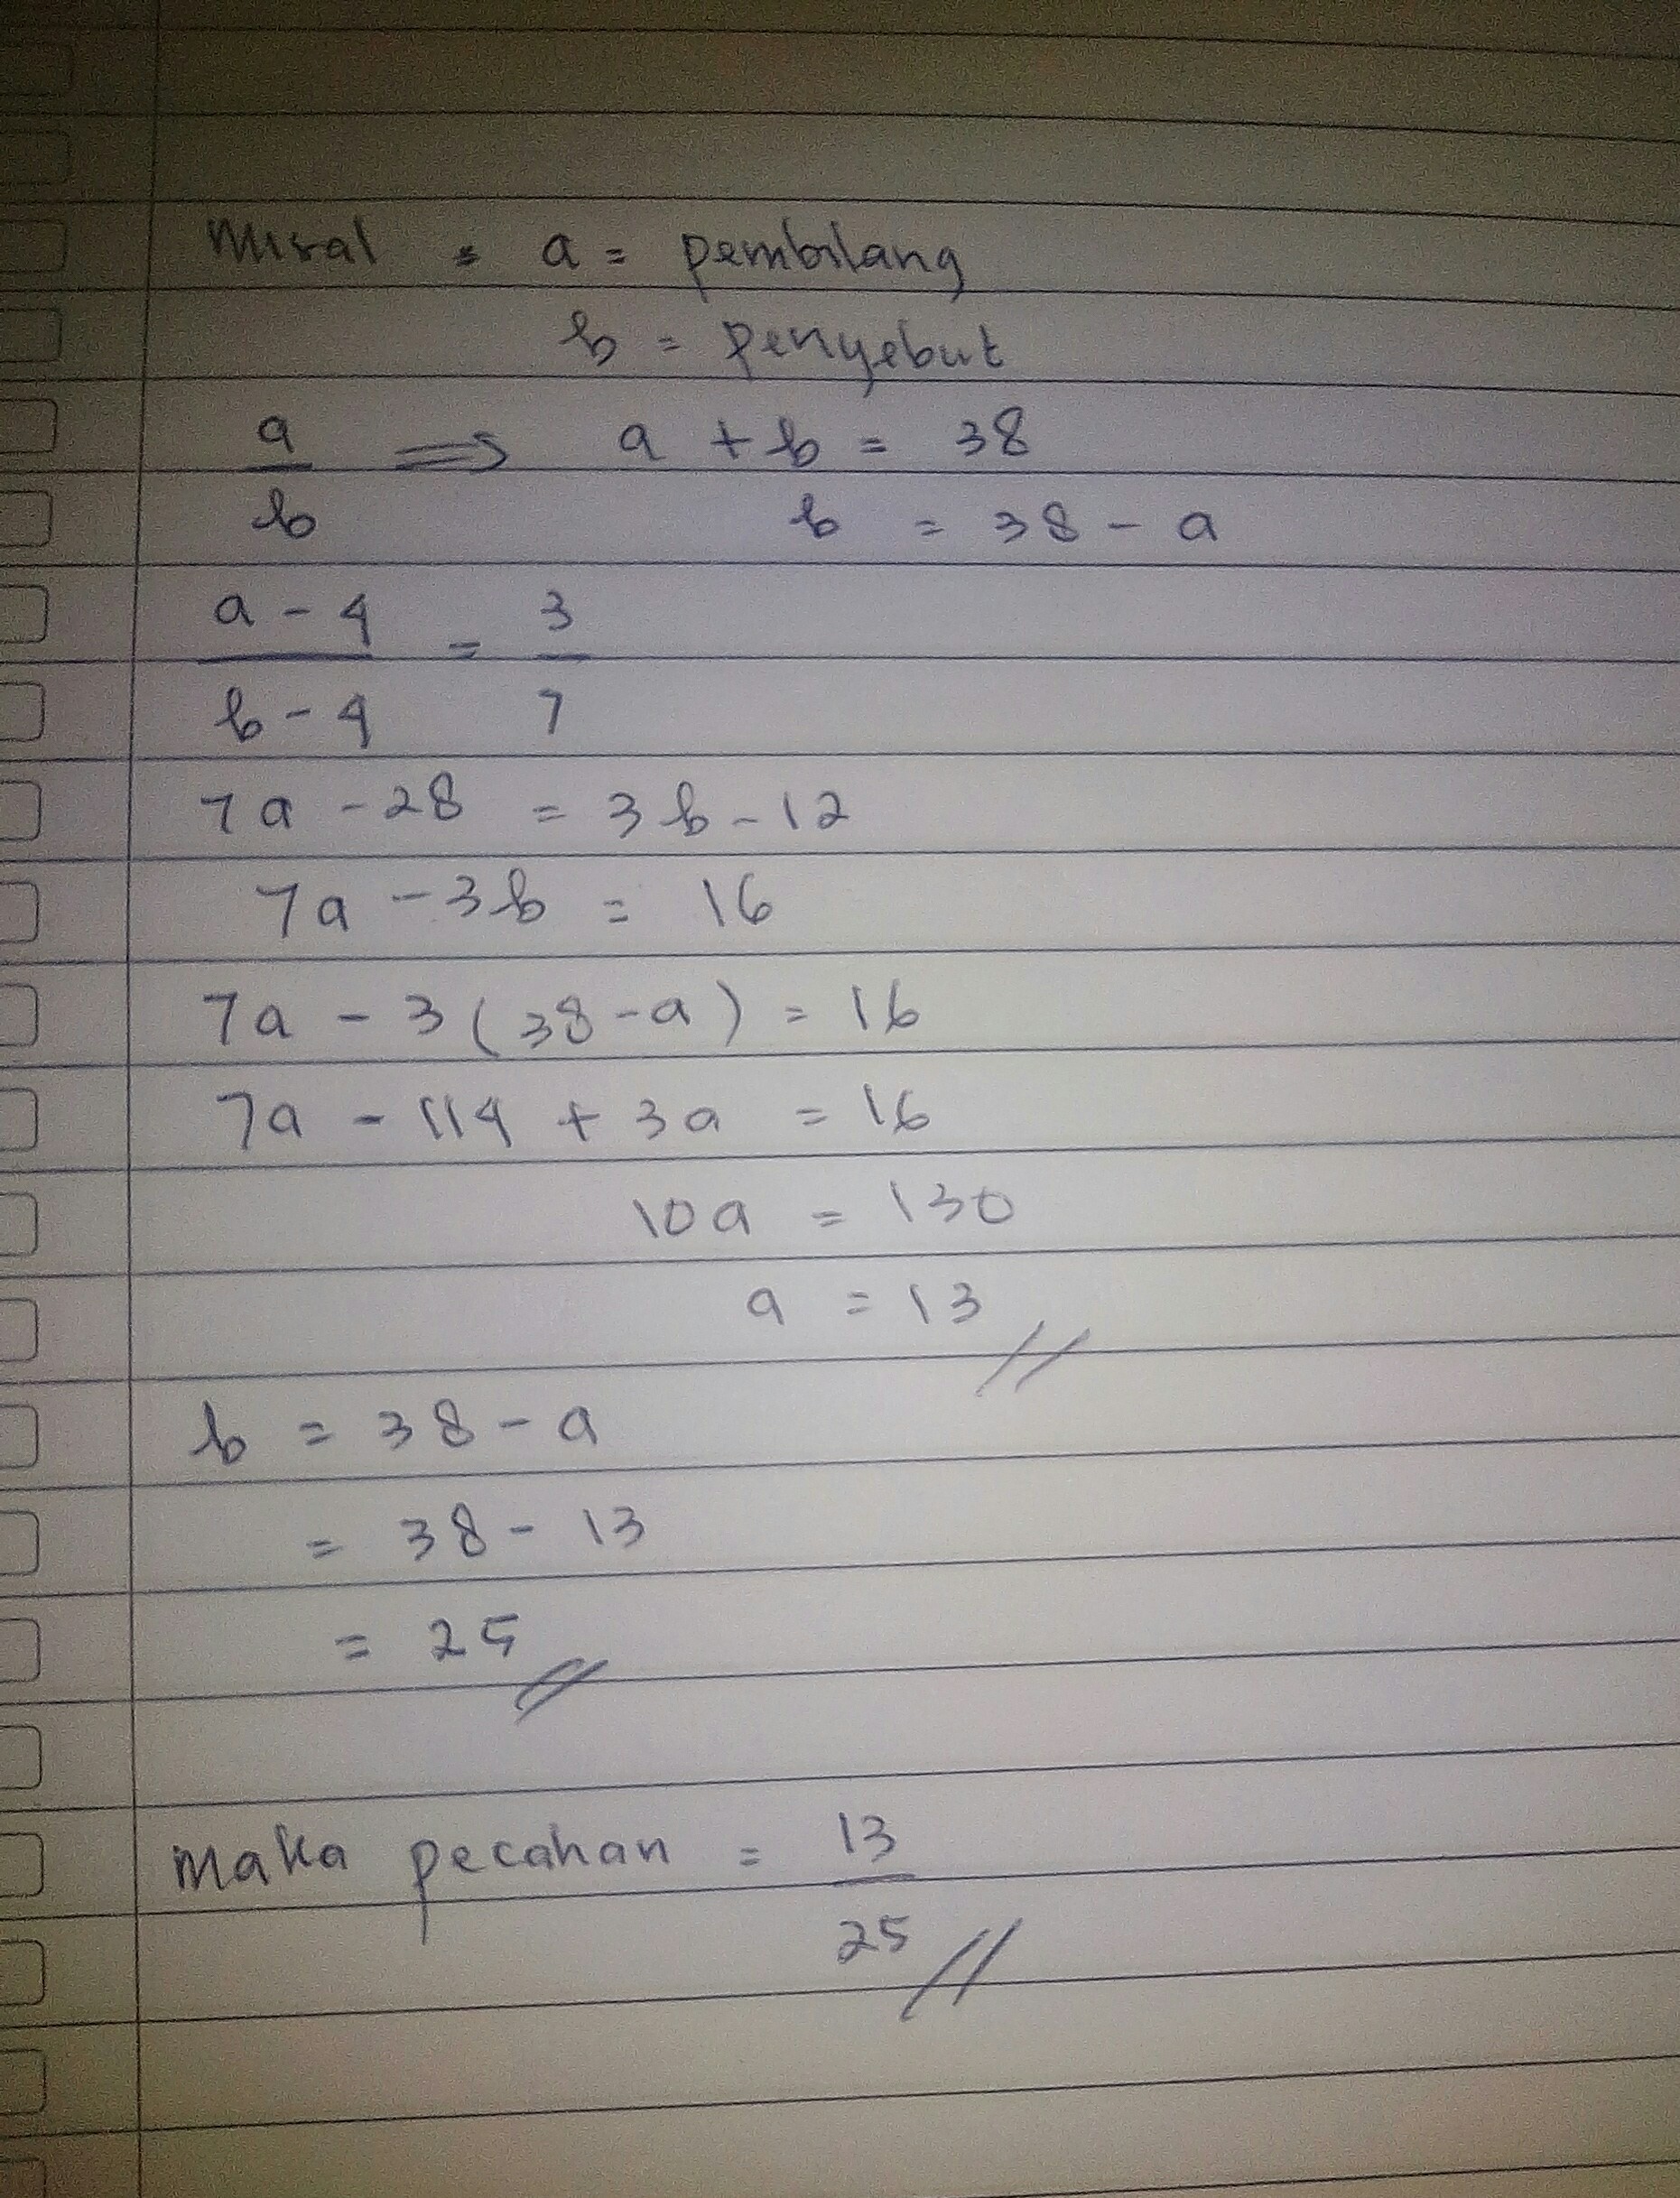 Misal = a = pembilang
b = penyebut
a/b ⇒ a + b = 38
b = 38 - a
a - 4 / b - 4 = 3/7
7a - 28 = 3b - 12
7a - 3b = 16
7a - 3 (38 - a) = 16
7a - 114 + 3a = 16
10a = 130
a = 13 //
b = 38 - a
= 38 - 13
= 25 //
Maka pecahan = 13/25 //